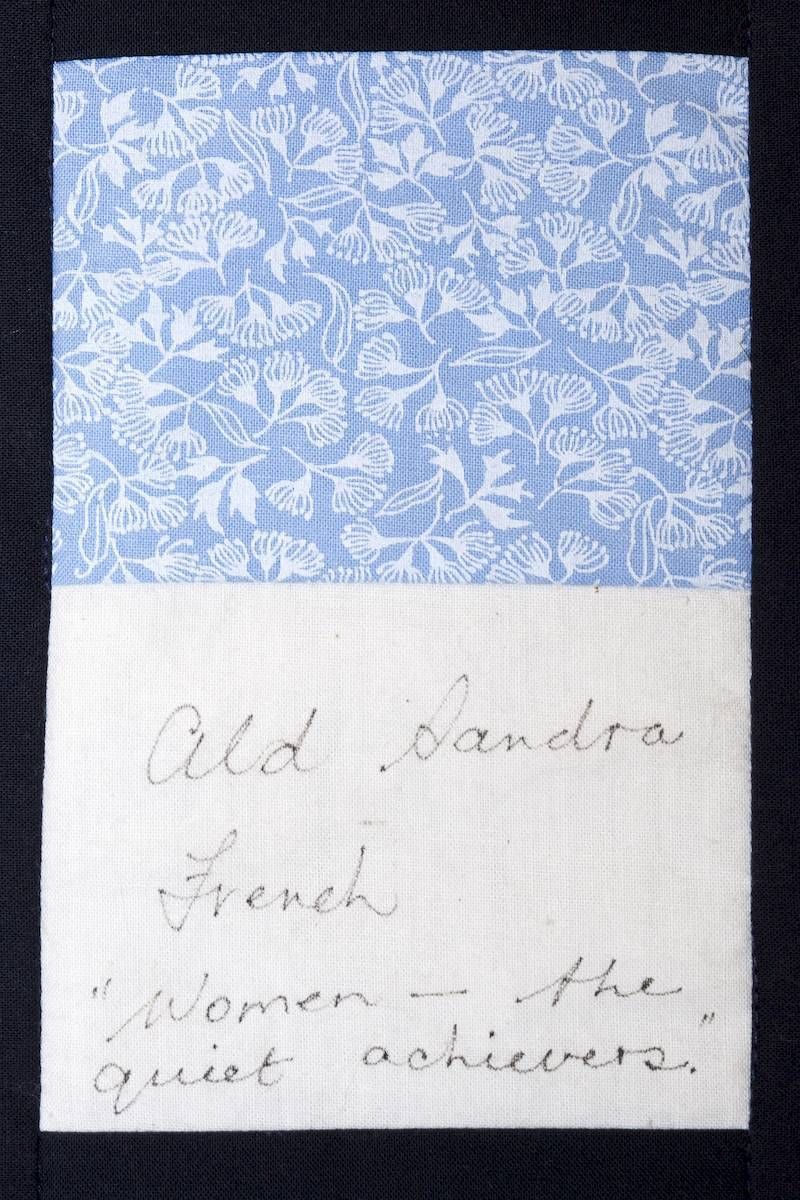 Ald Sandra
French
"Women — the
quiet achievers."